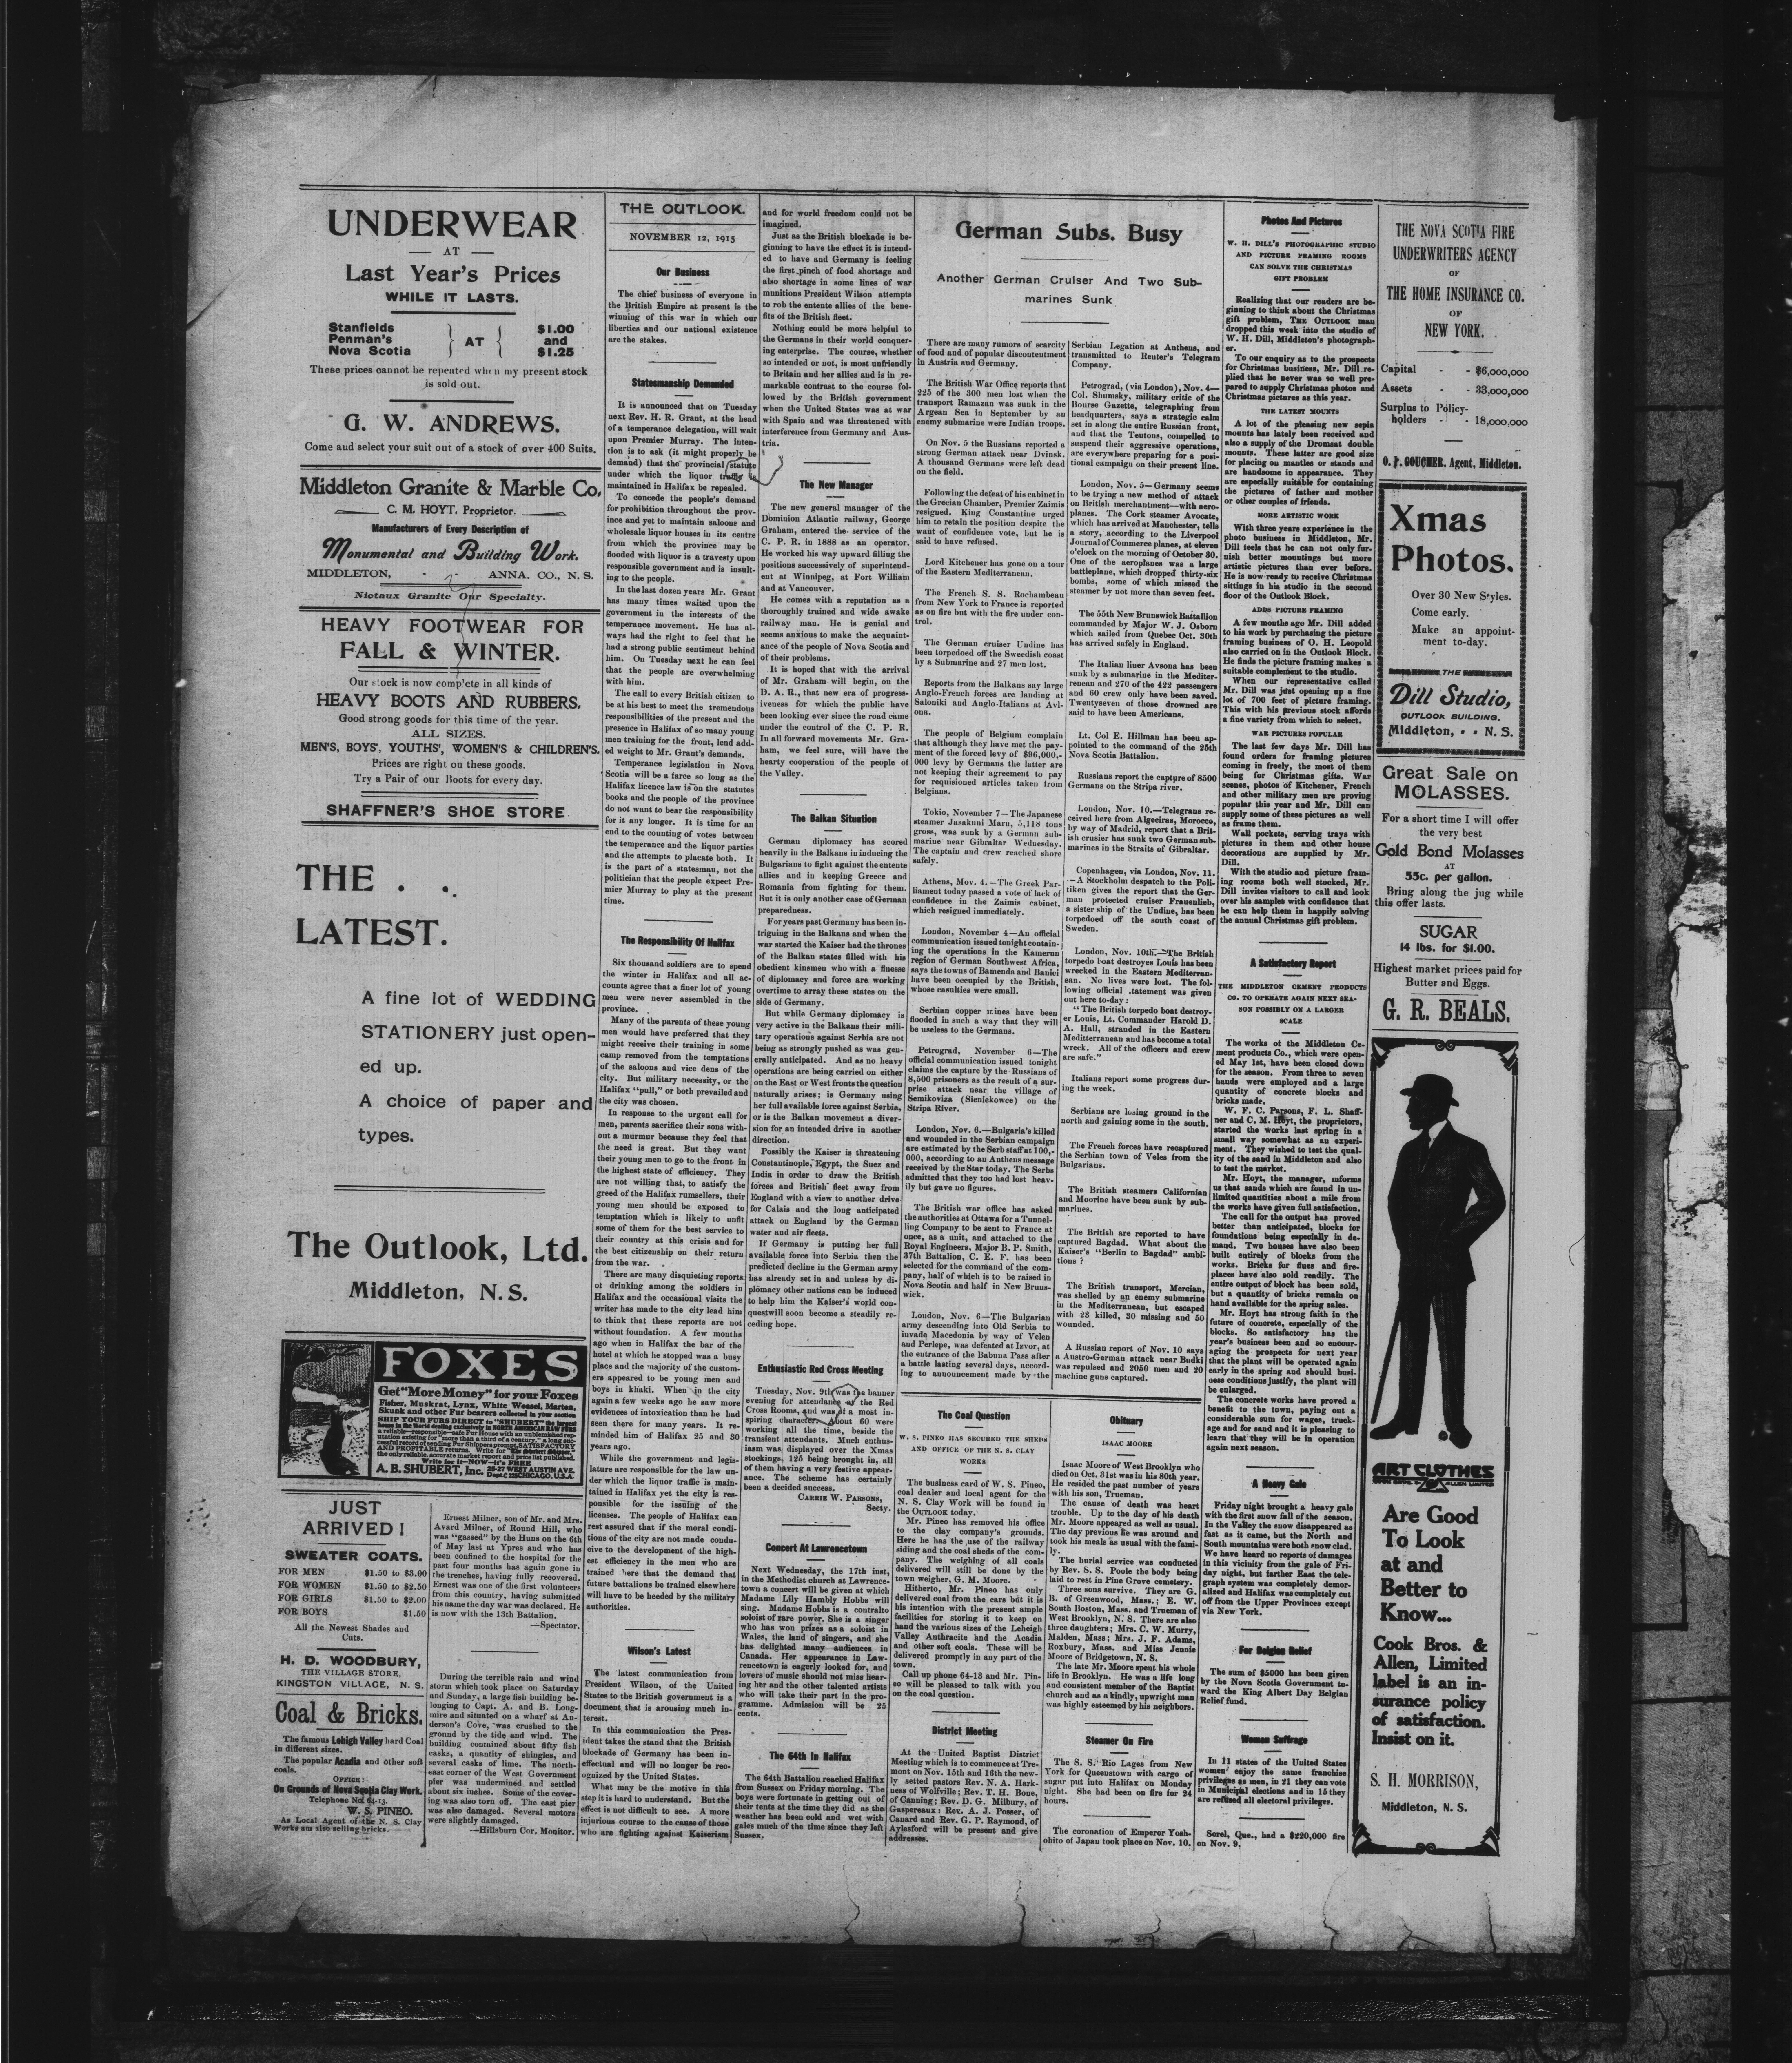 UNDERWEAR
— AT —
Last Year's Prices
WHILE IT LASTS.
Stanfields
Penman's
Nova Scotia
AT
$1.00
and
$1.25
These prices cannot be repeated when my present stock
is sold out.
G. W. ANDREWS.
Come and select your suit out of a stock of over 400 Suits.
Middleton Granite & Marble Co.
C. M. HOYT, Proprietor.
Manufacturers of Every Description of
Monumental and Building Work.
MIDDLETON, - - ANNA. CO., N. S.
Nictaux Granite Our Specialty.
HEAVY FOOTWEAR FOR
FALL & WINTER.
Our stock is now complete in all kinds of
HEAVY BOOTS AND RUBBERS.
Good strong goods for this time of the year.
ALL SIZES.
MEN'S, BOYS', YOUTHS', WOMEN'S & CHILDREN'S.
Prices are right on these goods.
Try a Pair of our Boots for every day.
SHAFFNER'S SHOE STORE
THE . .
LATEST.
A fine lot of WEDDING
STATIONERY just open-
ed up.
A choice of paper and
types.
The Outlook, Ltd.
Middleton, N. S.
FOXES
Get "More Money" for your Foxes
Fisher, Muskrat, Lynx, White Weasel, Marten,
Skunk and other Fur bearers collected in your section
SHIP YOUR FURS DIRECT to "SHUBERT" the largest
house in the World dealing exclusively in NORTH AMERICAN RAW FURS
a reliable—responsible—safe Fur House with an unblemished rep-
utation existing for "more than a third of a century," a long suc-
cessful record of sending Fur Shippers prompt, SATISFACTORY
AND PROFITABLE returns. Write for "The Shubert Shipper,"
the only reliable, accurate market report and price list published.
Write for it—NOW—it's FREE
A. B. SHUBERT, Inc. 25-27 WEST AUSTIN AVE.
CHICAGO, U.S.A.
JUST
ARRIVED!
SWEATER COATS.
FOR MEN $1.50 to $3.00
FOR WOMEN $1.50 to $2.50
FOR GIRLS $1.50 to $2.00
FOR BOYS $1.50
All the Newest Shades and
Cuts.
H. D. WOODBURY,
THE VILLAGE STORE,
KINGSTON VILLAGE, N. S.
Coal & Bricks.
The famous Lehigh Valley hard Coal
in different sizes.
The popular Acadia and other soft
coals.
OFFICE:
On Grounds of Nova Scotia Clay Work.
Telephone No. 64-13.
W. S. PINEO.
As Local Agent of the N. S. Clay
Works am also selling bricks.
Ernest Milner, son of Mr. and Mrs.
Avard Milner, of Round Hill, who
was "gassed" by the Huns on the 6th
of May last at Ypres and who has
been confined to the hospital for the
past four months has again gone in
the trenches, having fully recovered.
Ernest was one of the first volunteers
from this country, having submitted
his name the day war was declared. He
is now with the 13th Battalion.
—Spectator.
During the terrible rain and wind
storm which took place on Saturday
and Sunday, a large fish building be-
longing to Capt. A. and B. Long-
mire and situated on a wharf at An-
derson's Cove, was crushed to the
ground by the tide and wind. The
building contained about fifty fish
casks, a quantity of shingles, and
several casks of lime. The north-
east corner of the West Government
pier was undermined and settled
about six inches. Some of the cover-
ing was also torn off. The east pier
was also damaged. Several motors
were slightly damaged.
—Hillsburn Cor. Monitor.
THE OUTLOOK.
NOVEMBER 12, 1915
Our Business
The chief business of everyone in
the British Empire at present is the
winning of this war in which our
liberties and our national existence
are the stakes.
Statesmanship Demanded
It is announced that on Tuesday
next Rev. H. R. Grant, at the head
of a temperance delegation, will wait
upon Premier Murray. The inten-
tion is to ask (it might properly be
demand) that the provincial statute
under which the liquor traffic is
maintained in Halifax be repealed.
To concede the people's demand
for prohibition throughout the prov-
ince and yet to maintain saloons and
wholesale liquor houses in its centre
from which the province may be
flooded with liquor is a travesty upon
responsible government and is insult-
ing to the people.
In the last dozen years Mr. Grant
has many times waited upon the
government in the interests of the
temperance movement. He has al-
ways had the right to feel that he
had a strong public sentiment behind
him. On Tuesday next he can feel
that the people are overwhelming
with him.
The call to every British citizen to
be at his best to meet the tremendous
responsibilities of the present and the
presence in Halifax of so many young
men training for the front, lend add-
ed weight to Mr. Grant's demands.
Temperance legislation in Nova
Scotia will be a farce so long as the
Halifax licence law is on the statutes
books and the people of the province
do not want to bear the responsibility
for it any longer. It is time for an
end to the counting of votes between
the temperance and the liquor parties
and the attempts to placate both. It
is the part of a statesman, not the
politician that the people expect Pre-
mier Murray to play at the present
time.
The Responsibility Of Halifax
Six thousand soldiers are to spend
the winter in Halifax and all ac-
counts agree that a finer lot of young
men were never assembled in the
province.
Many of the parents of these young
men would have preferred that they
might receive their training in some
camp removed from the temptations
of the saloons and vice dens of the
city. But military necessity, or the
Halifax "pull," or both prevailed and
the city was chosen.
In response to the urgent call for
men, parents sacrifice their sons with-
out a murmur because they feel that
the need is great. But they want
their young men to go to the front in
the highest state of efficiency. They
are not willing that, to satisfy the
greed of the Halifax rumsellers, their
young men should be exposed to
temptation which is likely to unfit
some of them for the best service to
their country at this crisis and for
the best citizenship on their return
from the war.
There are many disquieting reports
of drinking among the soldiers in
Halifax and the occasional visits the
writer has made to the city lead him
to think that these reports are not
without foundation. A few months
ago when in Halifax the bar of the
hotel at which he stopped was a busy
place and the majority of the custom-
ers appeared to be young men and
boys in khaki. When in the city
again a few weeks ago he saw more
evidences of intoxication than he had
seen there for many years. It re-
minded him of Halifax 25 and 30
years ago.
While the government and legis-
lature are responsible for the law un-
der which the liquor traffic is main-
tained in Halifax yet the city is res-
ponsible for the issuing of the
licenses. The people of Halifax can
rest assured that if the moral condi-
tions of the city are not made condu-
cive to the development of the high-
est efficiency in the men who are
trained there that the demand that
future battalions be trained elsewhere
will have to be heeded by the military
authorities.
Wilson's Latest
The latest communication from
President Wilson, of the United
States to the British government is a
document that is arousing much in-
terest.
In this communication the Pres-
ident takes the stand that the British
blockade of Germany has been in-
effectual and will no longer be rec-
ognized by the United States.
What may be the motive in this
step it is hard to understand. But the
effect is not difficult to see. A more
injurious course to the cause of those
who are fighting against Kaiserism
and for world freedom could not be
imagined.
Just as the British blockade is be-
ginning to have the effect it is intend-
ed to have and Germany is feeling
the first pinch of food shortage and
also shortage in some lines of war
munitions President Wilson attempts
to rob the entente allies of the bene-
fits of the British fleet.
Nothing could be more helpful to
the Germans in their world conquer-
ing enterprise. The course, whether
so intended or not, is most unfriendly
to Britain and her allies and is in re-
markable contrast to the course fol-
lowed by the British government
when the United States was at war
with Spain and was threatened with
interference from Germany and Aus-
tria.
The New Manager
The new general manager of the
Dominion Atlantic railway, George
Graham, entered the service of the
C. P. R. in 1888 as an operator.
He worked his way upward filling the
positions successively of superintend-
ent at Winnipeg, at Fort William
and at Vancouver.
He comes with a reputation as a
thoroughly trained and wide awake
railway man. He is genial and
seems anxious to make the acquaint-
ance of the people of Nova Scotia and
of their problems.
It is hoped that with the arrival
of Mr. Graham will begin, on the
D. A. R., that new era of progress-
iveness for which the public have
been looking ever since the road came
under the control of the C. P. R.
In all forward movements Mr. Gra-
ham, we feel sure, will have the
hearty cooperation of the people of
the Valley.
The Balkan Situation
German diplomacy has scored
heavily in the Balkans in inducing the
Bulgarians to fight against the entente
allies and in keeping Greece and
Romania from fighting for them.
But it is only another case of German
preparedness.
For years past Germany has been in-
triguing in the Balkans and when the
war started the Kaiser had the thrones
of the Balkan states filled with his
obedient kinsmen who with a finesse
of diplomacy and force are working
overtime to array these states on the
side of Germany.
But while Germany diplomacy is
very active in the Balkans their mili-
tary operations against Serbia are not
being as strongly pushed as was gen-
erally anticipated. And as no heavy
operations are being carried on either
on the East or West fronts the question
naturally arises; is Germany using
her full available force against Serbia,
or is the Balkan movement a diver-
sion for an intended drive in another
direction.
Possibly the Kaiser is threatening
Constantinople, Egypt, the Suez and
India in order to draw the British
forces and British fleet away from
England with a view to another drive
for Calais and the long anticipated
attack on England by the German
water and air fleets.
If Germany is putting her full
available force into Serbia then the
predicted decline in the German army
has already set in and unless by di-
plomacy other nations can be induced
to help him the Kaiser's world con-
quest will soon become a steadily re-
ceding hope.
Enthusiastic Red Cross Meeting
Tuesday, Nov. 9th was the banner
evening for attendance at the Red
Cross Rooms, and was of a most in-
spiring character. About 60 were
working all the time, beside the
transient attendants. Much enthus-
iasm was displayed over the Xmas
stockings, 125 being brought in, all
of them having a very festive appear-
ance. The scheme has certainly
been a decided success.
CARRIE W. PARSONS,
Secty.
Concert At Lawrencetown
Next Wednesday, the 17th inst,
in the Methodist church at Lawrence-
town a concert will be given at which
Madame Lily Hambly Hobbs will
sing. Madame Hobbs is a contralto
soloist of rare power. She is a singer
who has won prizes as a soloist in
Wales, the land of singers, and she
has delighted many audiences in
Canada. Her appearance in Law-
rencetown is eagerly looked for, and
lovers of music should not miss hear-
ing her and the other talented artists
who will take their part in the pro-
gramme. Admission will be 25
cents.
The 64th In Halifax
The 64th Battalion reached Halifax
from Sussex on Friday morning. The
boys were fortunate in getting out of
their tents at the time they did as the
weather has been cold and wet with
gales much of the time since they left
Sussex.
German Subs. Busy
Another German Cruiser And Two Sub-
marines Sunk
There are many rumors of scarcity
of food and of popular discontentment
in Austria and Germany.
The British War Office reports that
225 of the 300 men lost when the
transport Ramazan was sunk in the
Argean Sea in September by an
enemy submarine were Indian troops.
On Nov. 5 the Russians reported a
strong German attack near Dvinsk.
A thousand Germans were left dead
on the field.
Following the defeat of his cabinet in
the Grecian Chamber, Premier Zaimis
resigned. King Constantine urged
him to retain the position despite the
want of confidence vote, but he is
said to have refused.
Lord Kitchener has gone on a tour
of the Eastern Mediterranean.
The French S. S. Rochambeau
from New York to France is reported
as on fire but with the fire under con-
trol.
The German cruiser Undine has
been torpedoed off the Sweedish coast
by a Submarine and 27 men lost.
Reports from the Balkans say large
Anglo-French forces are landing at
Saloniki and Anglo-Italians at Avl-
ona.
The people of Belgium complain
that although they have met the pay-
ment of the forced levy of $96,000,-
000 levy by Germans the latter are
not keeping their agreement to pay
for requisioned articles taken from
Belgians.
Tokio, November 7—The Japanese
steamer Jasakuni Maru, 5,118 tons
gross, was sunk by a German sub-
marine near Gibraltar Wednesday.
The captain and crew reached shore
safely.
Athens, Mov. 4.—The Greek Par-
liament today passed a vote of lack of
confidence in the Zaimis cabinet,
which resigned immediately.
London, November 4—An official
communication issued tonight contain-
ing the operations in the Kamerun
region of German Southwest Africa,
says the towns of Bamenda and Banici
have been occupied by the British,
whose casulties were small.
Serbian copper mines have been
flooded in such a way that they will
be useless to the Germans.
Petrograd, November 6—The
official communication issued tonight
claims the capture by the Russians of
8,500 prisoners as the result of a sur-
prise attack near the village of
Semikoviza (Sieniekowce) on the
Stripa River.
London, Nov. 6.—Bulgaria's killed
and wounded in the Serbian campaign
are estimated by the Serb staff at 100,-
000, according to an Anthens message
received by the Star today. The Serbs
admitted that they too had lost heav-
ily but gave no figures.
The British war office has asked
the authorities at Ottawa for a Tunnel-
ling Company to be sent to France at
once, as a unit, and attached to the
Royal Engineers, Major B. P. Smith,
37th Battalion, C. E. F. has been
selected for the command of the com-
pany, half of which is to be raised in
Nova Scotia and half in New Bruns-
wick.
London, Nov. 6—The Bulgarian
army descending into Old Serbia to
invade Macedonia by way of Velen
and Perlepe, was defeated at Izvor, at
the entrance of the Babuna Pass after
a battle lasting several days, accord-
ing to announcement made by the
Serbian Legation at Anthens, and
transmitted to Reuter's Telegram
Company.
Petrograd, (via London), Nov. 4—
Col. Shumsky, military critic of the
Bourse Gazette, telegraphing from
headquarters, says a strategic calm
set in along the entire Russian front,
and that the Teutons, compelled to
suspend their aggressive operations,
are everywhere preparing for a posi-
tional campaign on their present line.
London, Nov. 5—Germany seems
to be trying a new method of attack
on British merchantment—with aero-
planes. The Cork steamer Avocate,
which has arrived at Manchester, tells
a story, according to the Liverpool
Journal of Commerce planes, at eleven
o'clock on the morning of October 30.
One of the aeroplanes was a large
battleplane, which dropped thirty-six
bombs, some of which missed the
steamer by not more than seven feet.
The 55th New Brunswick Battallion
commanded by Major W. J. Osborn
which sailed from Quebec Oct. 30th
has arrived safely in England.
The Italian liner Avsona has been
sunk by a submarine in the Mediter-
renean and 270 of the 422 passengers
and 60 crew only have been saved.
Twentyseven of those drowned are
said to have been Americans.
Lt. Col E. Hillman has been ap-
pointed to the command of the 25th
Nova Scotia Battalion.
Russians report the capture of 8500
Germans on the Stripa river.
London, Nov. 10.—Telegrans re-
ceived here from Algeciras, Morocco,
by way of Madrid, report that a Brit-
ish crusier has sunk two German sub-
marines in the Straits of Gibraltar.
Copenhagen, via London, Nov. 11.
—A Stockholm despatch to the Poli-
tiken gives the report that the Ger-
man protected cruiser Frauenlieb,
a sister ship of the Undine, has been
torpedoed off the south coast of
Sweden.
London, Nov. 10th.—The British
torpedo boat destroyes Louis has been
wrecked in the Eastern Mediterran-
ean. No lives were lost. The fol-
lowing official statement was given
out here to-day:
"The British torpedo boat destroy-
er Louis, Lt. Commander Harold D.
A. Hall, stranded in the Eastern
Medetterranean and has become a total
wreck. All of the officers and crew
are safe."
Italians report some progress dur-
ing the week.
Serbians are losing ground in the
north and gaining some in the south.
The French forces have recaptured
the Serbian town of Veles from the
Bulgarians.
The British steamers Californian
and Moorine have been sunk by sub-
marines.
The British are reported to have
captured Bagdad. What about the
Kaiser's "Berlin to Bagdad" ambi-
tions ?
The British transport, Mercian,
was shelled by an enemy submarine
in the Mediterranean, but escaped
with 23 killed, 30 missing and 50
wounded.
A Russian report of Nov. 10 says
a Austro-German attack near Budki
was repulsed and 2050 men and 20
machine guns captured.
The Coal Question
W. S. PINEO HAS SECURED THE SHEDS
AND OFFICE OF THE N. S. CLAY
WORKS
The business card of W. S. Pineo,
coal dealer and local agent for the
N. S. Clay Work will be found in
the OUTLOOK today.
Mr. Pineo has removed his office
to the clay company's grounds.
Here he has the use of the railway
siding and the coal sheds of the com-
pany. The weighing of all coals
delivered will still be done by the
town weigher, G. M. Moore.
Hitherto, Mr. Pineo has only
delivered coal from the cars but it is
his intention with the present ample
facilities for storing it to keep on
hand the various sizes of the Leheigh
Valley Anthracite and the Acadia
and other soft coals. These will be
delivered promptly in any part of the
town.
Call up phone 64-13 and Mr. Pin-
eo will be pleased to talk with you
on the coal question.
District Meeting
At the United Baptist District
Meeting which is to commence at Tre-
mont on Nov. 15th and 16th the new-
ly setted pastors Rev. N. A. Hark-
ness of Wolfville; Rev. T. H. Bone,
of Canning; Rev. D. G. Milbury, of
Gaspereaux: Rev. A. J. Posser, of
Canard and Rev. G. P. Raymond, of
Aylesford will be present and give
addresses.
Obituary
ISAAC MOORE
Isaac Moore of West Brooklyn who
died on Oct. 31st was in his 80th year.
He resided the past number of years
with his son, Trueman.
The cause of death was heart
trouble. Up to the day of his death
Mr. Moore appeared as well as usual.
The day previous he was around and
took his meals as usual with the fami-
ly.
The burial service was conducted
by Rev. S. S. Poole the body being
laid to rest in Pine Grove cemetery.
Three sons survive. They are G.
B. of Greenwood, Mass.; E. W.
South Boston, Mass. and Trueman of
West Brooklyn, N. S. There are also
three daughters; Mrs. C. W. Murry,
Malden, Mass; Mrs. J. F. Adams,
Roxbury, Mass. and Miss Jennie
Moore of Bridgetown, N. S.
The late Mr. Moore spent his whole
life in Brooklyn. He was a life long
and consistent member of the Baptist
church and as a kindly, upwright man
was highly esteemed by his neighbors.
Steamer On Fire
The S. S. Rio Lages from New
York for Queenstown with cargo of
sugar put into Halifax on Monday
night. She had been on fire for 24
hours.
The coronation of Emperor Yosh-
ohito of Japan took place on Nov. 10.
Photos And Pictures
W. H. DILL'S PHOTOGRAPHIC STUDIO
AND PICTURE FRAMING ROOMS
CAN SOLVE THE CHRISTMAS
GIFT PROBLEM
Realizing that our readers are be-
ginning to think about the Christmas
gift problem, THE OUTLOOK man
dropped this week into the studio of
W. H. Dill, Middleton's photograph-
er.
To our enquiry as to the prospects
for Christmas business, Mr. Dill re-
plied that he never was so well pre-
pared to supply Christmas photos and
Christmas pictures as this year.
THE LATEST MOUNTS
A lot of the pleasing new sepia
mounts has lately been received and
also a supply of the Dromsat double
mounts. These latter are good size
for placing on mantles or stands and
are handsome in appearance. They
are especially suitable for containing
the pictures of father and mother
or other couples of friends.
MORE ARTISTIC WORK
With three years experience in the
photo business in Middleton, Mr.
Dill feels that he can not only fur-
nish better mountings but more
artistic pictures than ever before.
He is now ready to receive Christmas
sittings in his studio in the second
floor of the Outlook Block.
ADDS PICTURE FRAMING
A few months ago Mr. Dill added
to his work by purchasing the picture
framing business of O. H. Leopold
also carried on in the Outlook Block.
He finds the picture framing makes a
suitable complement to the studio.
When our representative called
Mr. Dill was just opening up a fine
lot of 700 feet of picture framing.
This with his previous stock affords
a fine variety from which to select.
WAR PICTURES POPULAR
The last few days Mr. Dill has
found orders for framing pictures
coming in freely, the most of them
being for Christmas gifts. War
scenes, photos of Kitchener, French
and other military men are proving
popular this year and Mr. Dill can
supply some of these pictures as well
as frame them.
Wall pockets, serving trays with
pictures in them and other house
decorations are supplied by Mr.
Dill.
With the studio and picture fram-
ing rooms both well stocked, Mr.
Dill invites visitors to call and look
over his samples with confidence that
he can help them in happily solving
the annual Christmas gift problem.
A Satisfactory Report
THE MIDDLETON CEMENT PRODUCTS
CO. TO OPERATE AGAIN NEXT SEA-
SON POSSIBLY ON A LARGER
SCALE
The works ot the Middleton Ce-
ment products Co., which were open-
ed May 1st, have been closed down
for the season. From three to seven
hands were employed and a large
quantity of concrete blocks and
bricks made.
W. F. C. Parsons, F. L. Shaff-
ner and C. M. Hoyt, the proprietors,
started the works last spring in a
small way somewhat as an experi-
ment. They wished to test the qual-
ity of the sand in Middleton and also
to test the market.
Mr. Hoyt, the manager, informs
us that sands which are found in un-
limited quantities about a mile from
the works have given full satisfaction.
The call for the output has proved
better than anticipated, blocks for
foundations being especially in de-
mand. Two houses have also been
built entirely of blocks from the
works. Bricks for flues and fire-
places have also sold readily. The
entire output of block has been sold,
but a quantity of bricks remain on
hand available for the spring sales.
Mr. Hoyt has strong faith in the
future of concrete, especially of the
blocks. So satisfactory has the
year's business been and so encour-
aging the prospects for next year
that the plant will be operated again
early in the spring and should busi-
ness conditions justify, the plant will
be enlarged.
The concrete works have proved a
benefit to the town, paying out a
considerable sum for wages, truck-
age and for sand and it is pleasing to
learn that they will be in operation
again next season.
A Heavy Gale
Friday night brought a heavy gale
with the first snow fall of the season.
In the Valley the snow disappeared as
fast as it came, but the North and
South mountains were both snow clad.
We have heard no reports of damages
in this vicinity from the gale of Fri-
day night, but farther East the tele-
graph system was completely demor-
alized and Halifax was completely cut
off from the Upper Provinces except
via New York.
For Belgian Relief
The sum of $5000 has been given
by the Nova Scotia Government to-
ward the King Albert Day Belgian
Relief fund.
Woman Suffrage
In 11 states of the United States
women enjoy the same franchise
privileges as men, in 21 they can vote
in Municipal elections and in 15 they
are refused all electoral privileges.
Sorel, Que., had a $220,000 fire
on Nov. 9.
THE NOVA SCOTIA FIRE
UNDERWRITERS AGENCY
OF
THE HOME INSURANCE CO.
OF
NEW YORK.
Capital - - $6,000,000
Assets - - 33,000,000
Surplus to Policy-
holders - - 18,000,000
O. P. GOUCHER, Agent, Middleton.
Xmas
Photos.
Over 30 New Styles.
Come early.
Make an appoint-
ment to-day.
THE
Dill Studio,
OUTLOOK BUILDING.
Middleton, - - N. S.
Great Sale on
MOLASSES.
For a short time I will offer
the very best
Gold Bond Molasses
AT
55c. per gallon.
Bring along the jug while
this offer lasts.
SUGAR
14 lbs. for $1.00.
Highest market prices paid for
Butter and Eggs.
G. R. BEALS.
ART CLOTHES
COOK BROS. & ALLEN LIMITED
Are Good
To Look
at and
Better to
Know...
Cook Bros. &
Allen, Limited
label is an in-
surance policy
of satisfaction.
Insist on it.
S. H. MORRISON,
Middleton, N. S.